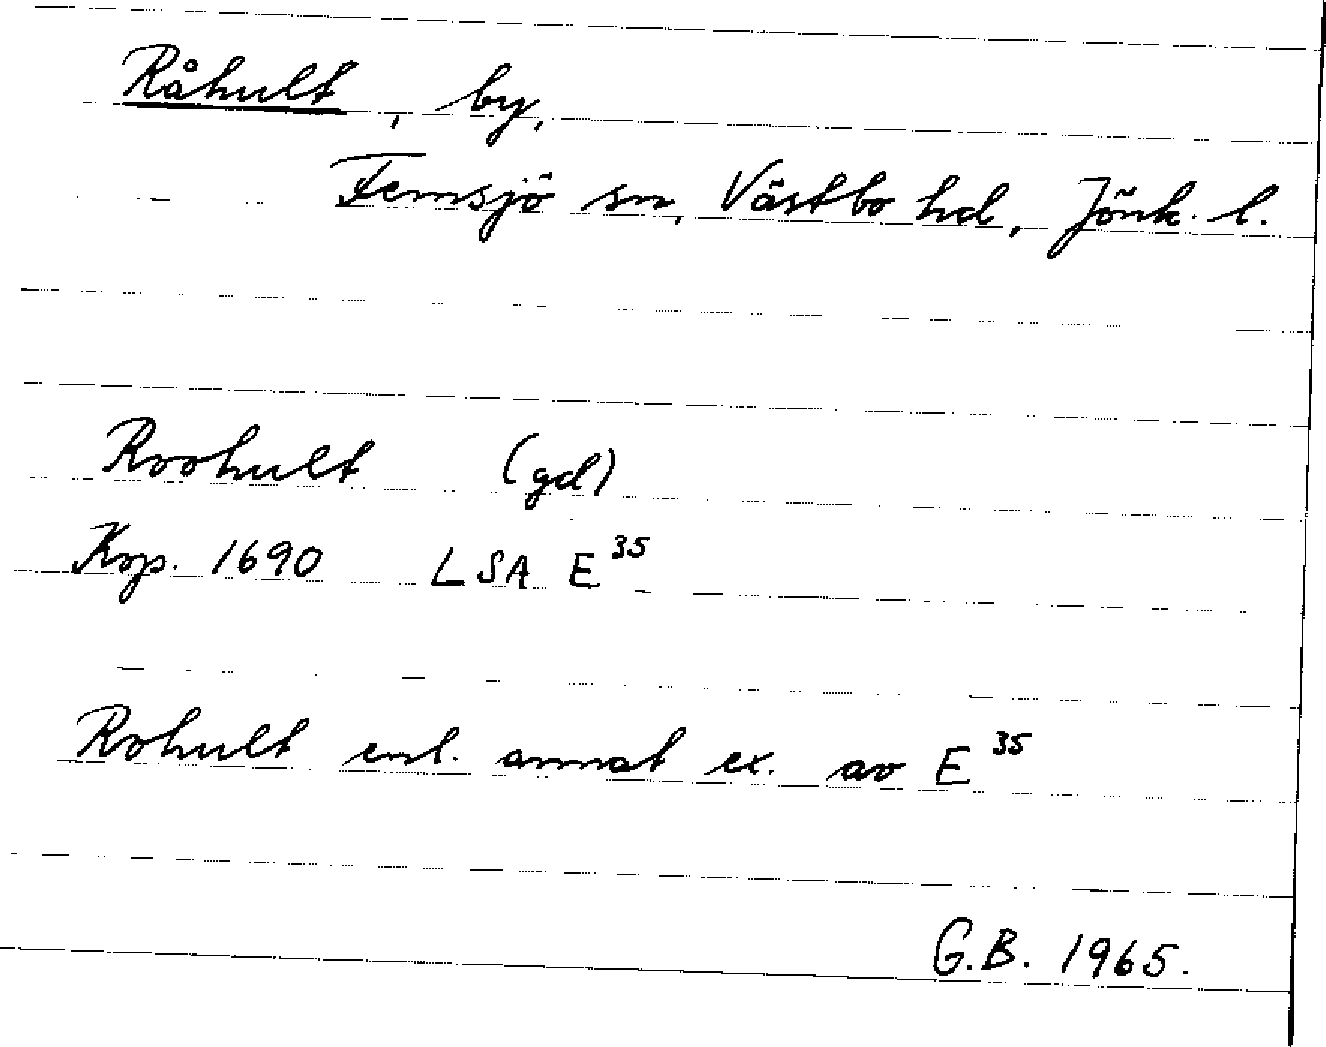 Råhult, by,
Femsjö sn, Västbo hd, Jönk. l.
Roohult (gd)
Kop. 1690 LSA E 35
Rohult enl. annat ex. av E 35
G.B. 1965.